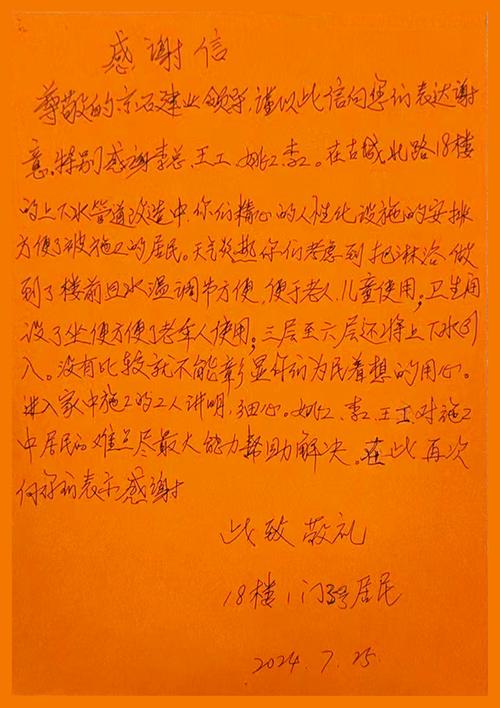 感谢信
尊敬的京石建业领导，谨以此信向您们表达谢
意。特别感谢李总、王工、姚工、李工。在古城北路18楼
的上下水管道改造中，你们精心的人性化设施的安排
方便了被施工的居民。天气炎热你们考虑到把淋浴做
到了楼前且水温调节方便，便于老人、儿童使用；卫生间
设了坐便方便了老年人使用；三层至六层还将上下水引
入。没有比较就不能彰显你们为民着想的用心。
进入家中施工的工人讲明，细心。姚工、李工、王工对施工
中居民的难点尽最大能力帮助解决。在此再次
向你们表示感谢
此致敬礼
18楼1门 居民
2024.7.25